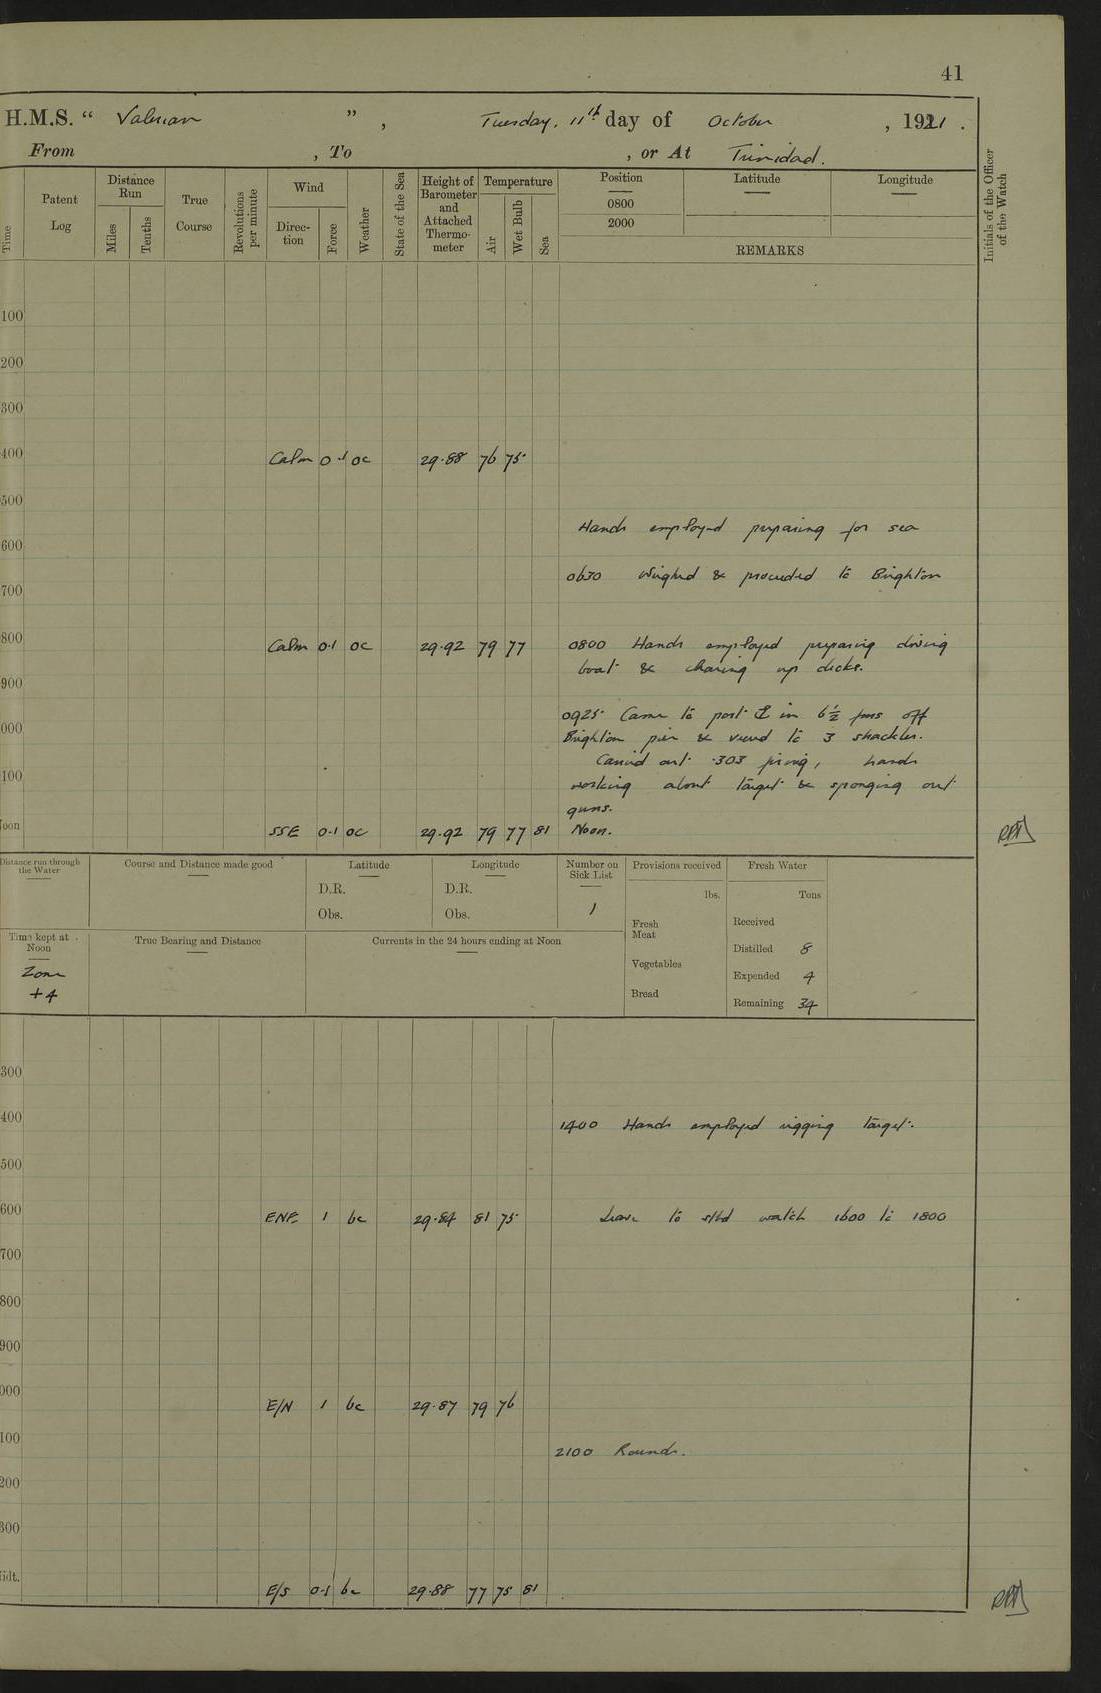 41
H.M.S. “ Valerian ” , Tuesday, 11th day of October , 1921 .
From , To , or At Trinidad.
Time
Patent Log
Distance Run
Miles
Tenths
True Course
Revolutions per minute
Wind
Direction
Force
Weather
State of the Sea
Height of Barometer and Attached Thermometer
Temperature
Air
Wet Bulb
Sea
Position
0800
2000
Latitude
Longitude
REMARKS
Initials of the Officer of the Watch
100
200
300
400 Calm 0.1 oc 29.88 76 75
500
Hands employed preparing for sea
600
0630 Weighed & proceeded to Brighton
700
800 Calm 0.1 oc 29.92 79 77 0800 Hands employed preparing diving
boat & clearing up decks.
900
0925 Came to port ⚓ in 6½ fms off
000 Brighton pier & veered to 3 shackles.
Carried out .303 firing, hands
100 working about target & sponging out
guns.
oon SSE 0.1 oc 29.92 79 77 81 Noon.
Distance run through the Water
Course and Distance made good
Latitude
D.R.
Obs.
Longitude
D.R.
Obs.
Number on Sick List
1
Provisions received
lbs.
Fresh Meat
Vegetables
Bread
Fresh Water
Tons
Received
Distilled 8
Expended 4
Remaining 34
Time kept at Noon
Zone
+4
True Bearing and Distance
Currents in the 24 hours ending at Noon
300
400 1400 Hands employed rigging target.
500
600 ENE 1 bc 29.84 81 75 Leave to stbd watch 1600 to 1800
700
800
900
000 E/N 1 bc 29.87 79 76
100 2100 Rounds.
200
300
idt. E/S 0.1 bc 29.88 77 75 81